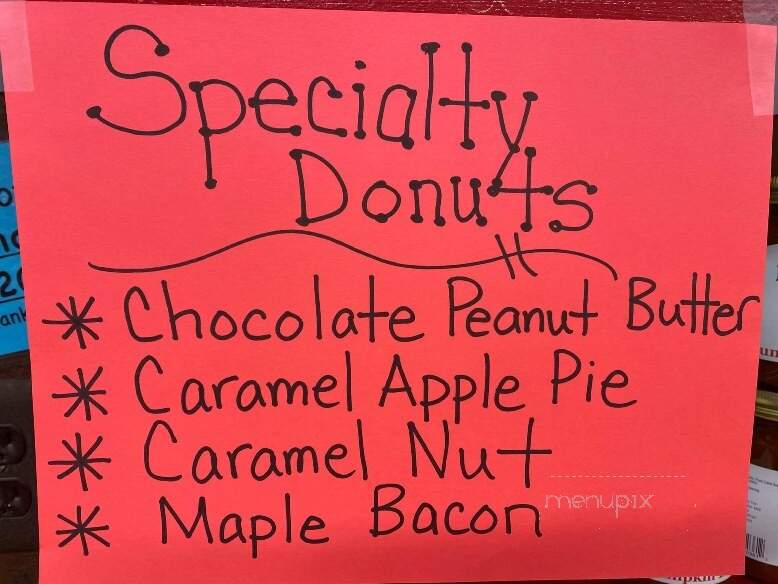 Specialty
Donuts
* Chocolate Peanut Butter
* Caramel Apple Pie
* Caramel Nut
* Maple Bacon
menupix